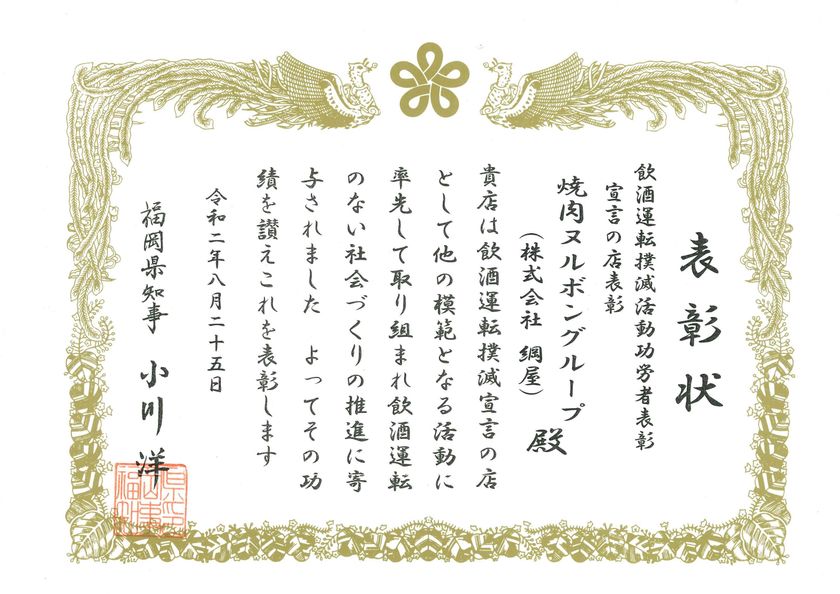 表彰状
飲酒運転撲滅活動功労者表彰
宣言の店表彰
焼肉ヌルボングループ 殿
(株式会社 綱屋)
貴店は飲酒運転撲滅宣言の店
として他の模範となる活動に
率先して取り組まれ飲酒運転
のない社会づくりの推進に寄
与されました よってその功
績を讃えこれを表彰します
令和二年八月二十五日
福岡県知事 小川 洋